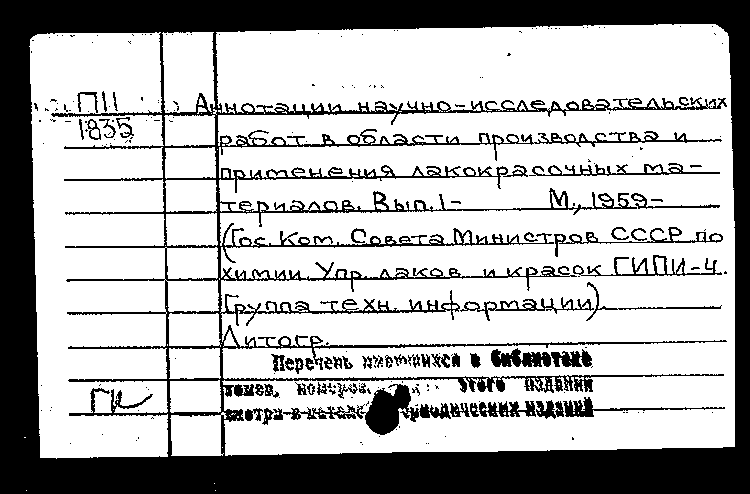 П11 Аннотации научно-исследовательских
1835 работ в области производства и
применения лакокрасочных ма-
териалов. Вып. 1- М., 1959-
(Гос. Ком. Совета Министров СССР по
химии. Упр. лаков и красок ГИПИ-4.
Группа техн. информации).
Литогр.
Перечень имеющихся в библиотеке
томов, номеров этого издания
ГК смотри в каталоге периодических изданий